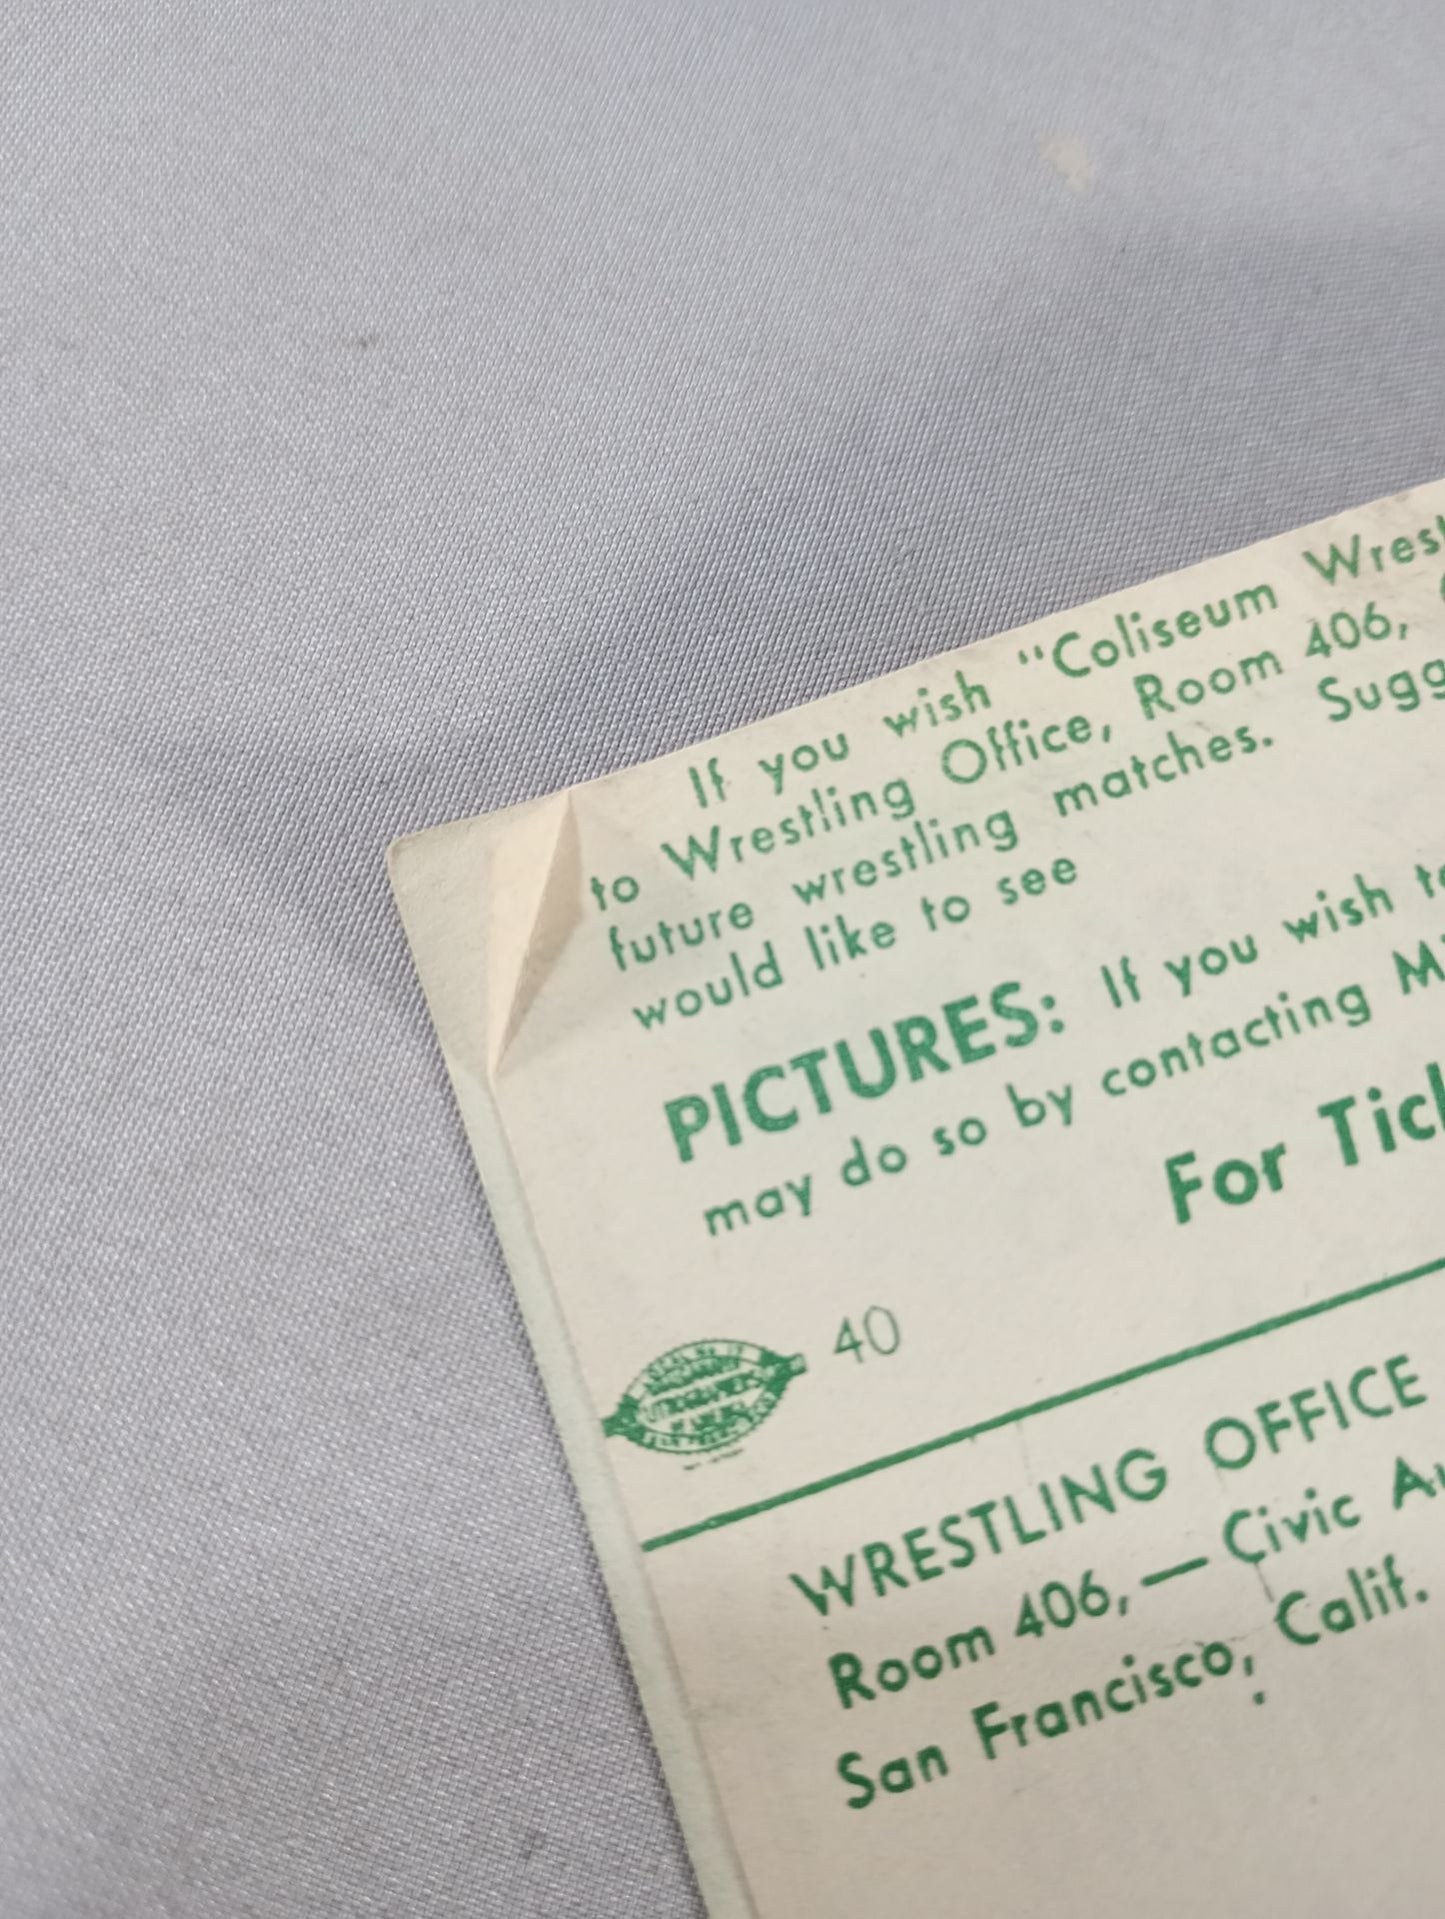 If you wish "Coliseum Wrest
to Wrestling Office, Room 406,
future wrestling matches. Sugg
would like to see
PICTURES: If you wish to
may do so by contacting M
For Tic
40
WRESTLING OFFICE
Room 406, — Civic Au
San Francisco, Calif.